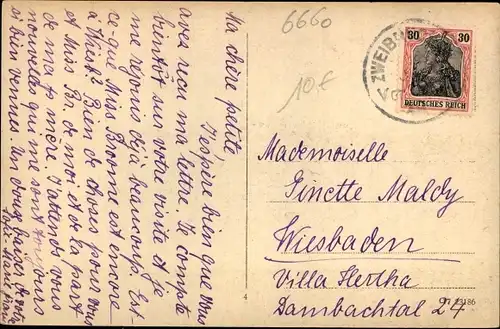 Ma chère petite,
J'espère bien que vous
avez reçu ma lettre. Je compte
bientôt sur votre visite et je
me réjouis déjà beaucoup. Est-
ce-que Miss Broome est encore
à Wiesb.? Bien de choses pour vous
et Miss Br. de moi et de la part
de ma mère. J'attends vos
nouvelles qui me sont toujours
si bien venues. Un doux baiser de votre
6660
10 €
30 30
DEUTSCHES REICH
ZWEIB
Mademoiselle
Ginette Maldy
Wiesbaden
Villa Hertha
Dambachtal 24
4